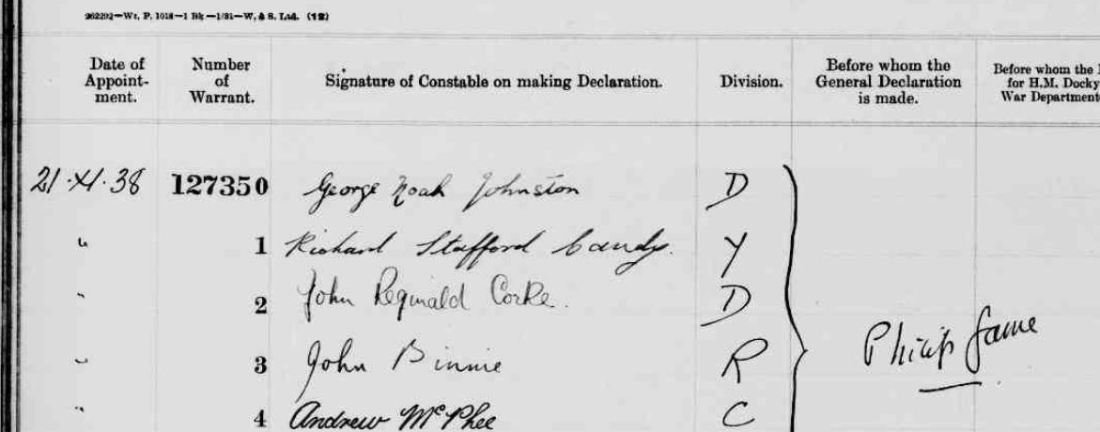 262292—Wt. P. 1018—1 Bk—1/31—W. & S. Ltd. (12)
Date of Appoint-ment. Number of Warrant. Signature of Constable on making Declaration. Division. Before whom the General Declaration is made. Before whom the for H.M. Docky War Department
21·XI·38 127350 George Noah Johnston D
" 1 Richard Stafford Candy. Y
" 2 John Reginald Corke. D
" 3 John Binnie R Philip Game
" 4 Andrew McPhee C